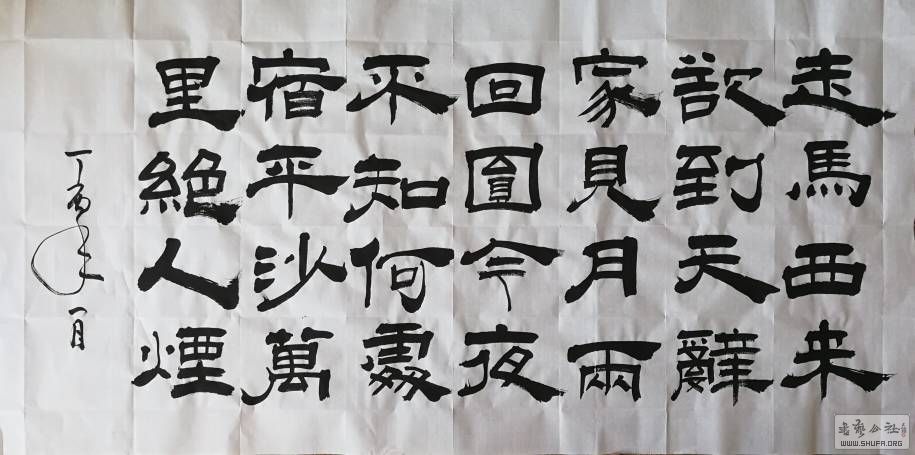 走馬西来
欲到天辭
家見月兩
回圓今夜
不知何處
宿平沙萬
里絕人煙
丁酉年一月
WWW.SHUFA.ORG